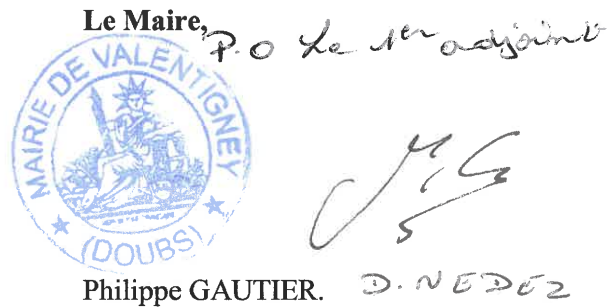 Le Maire, P.O Le 1er adjoint
MAIRIE DE VALENTIGNEY
(DOUBS)
Philippe GAUTIER. D. NEDEZ